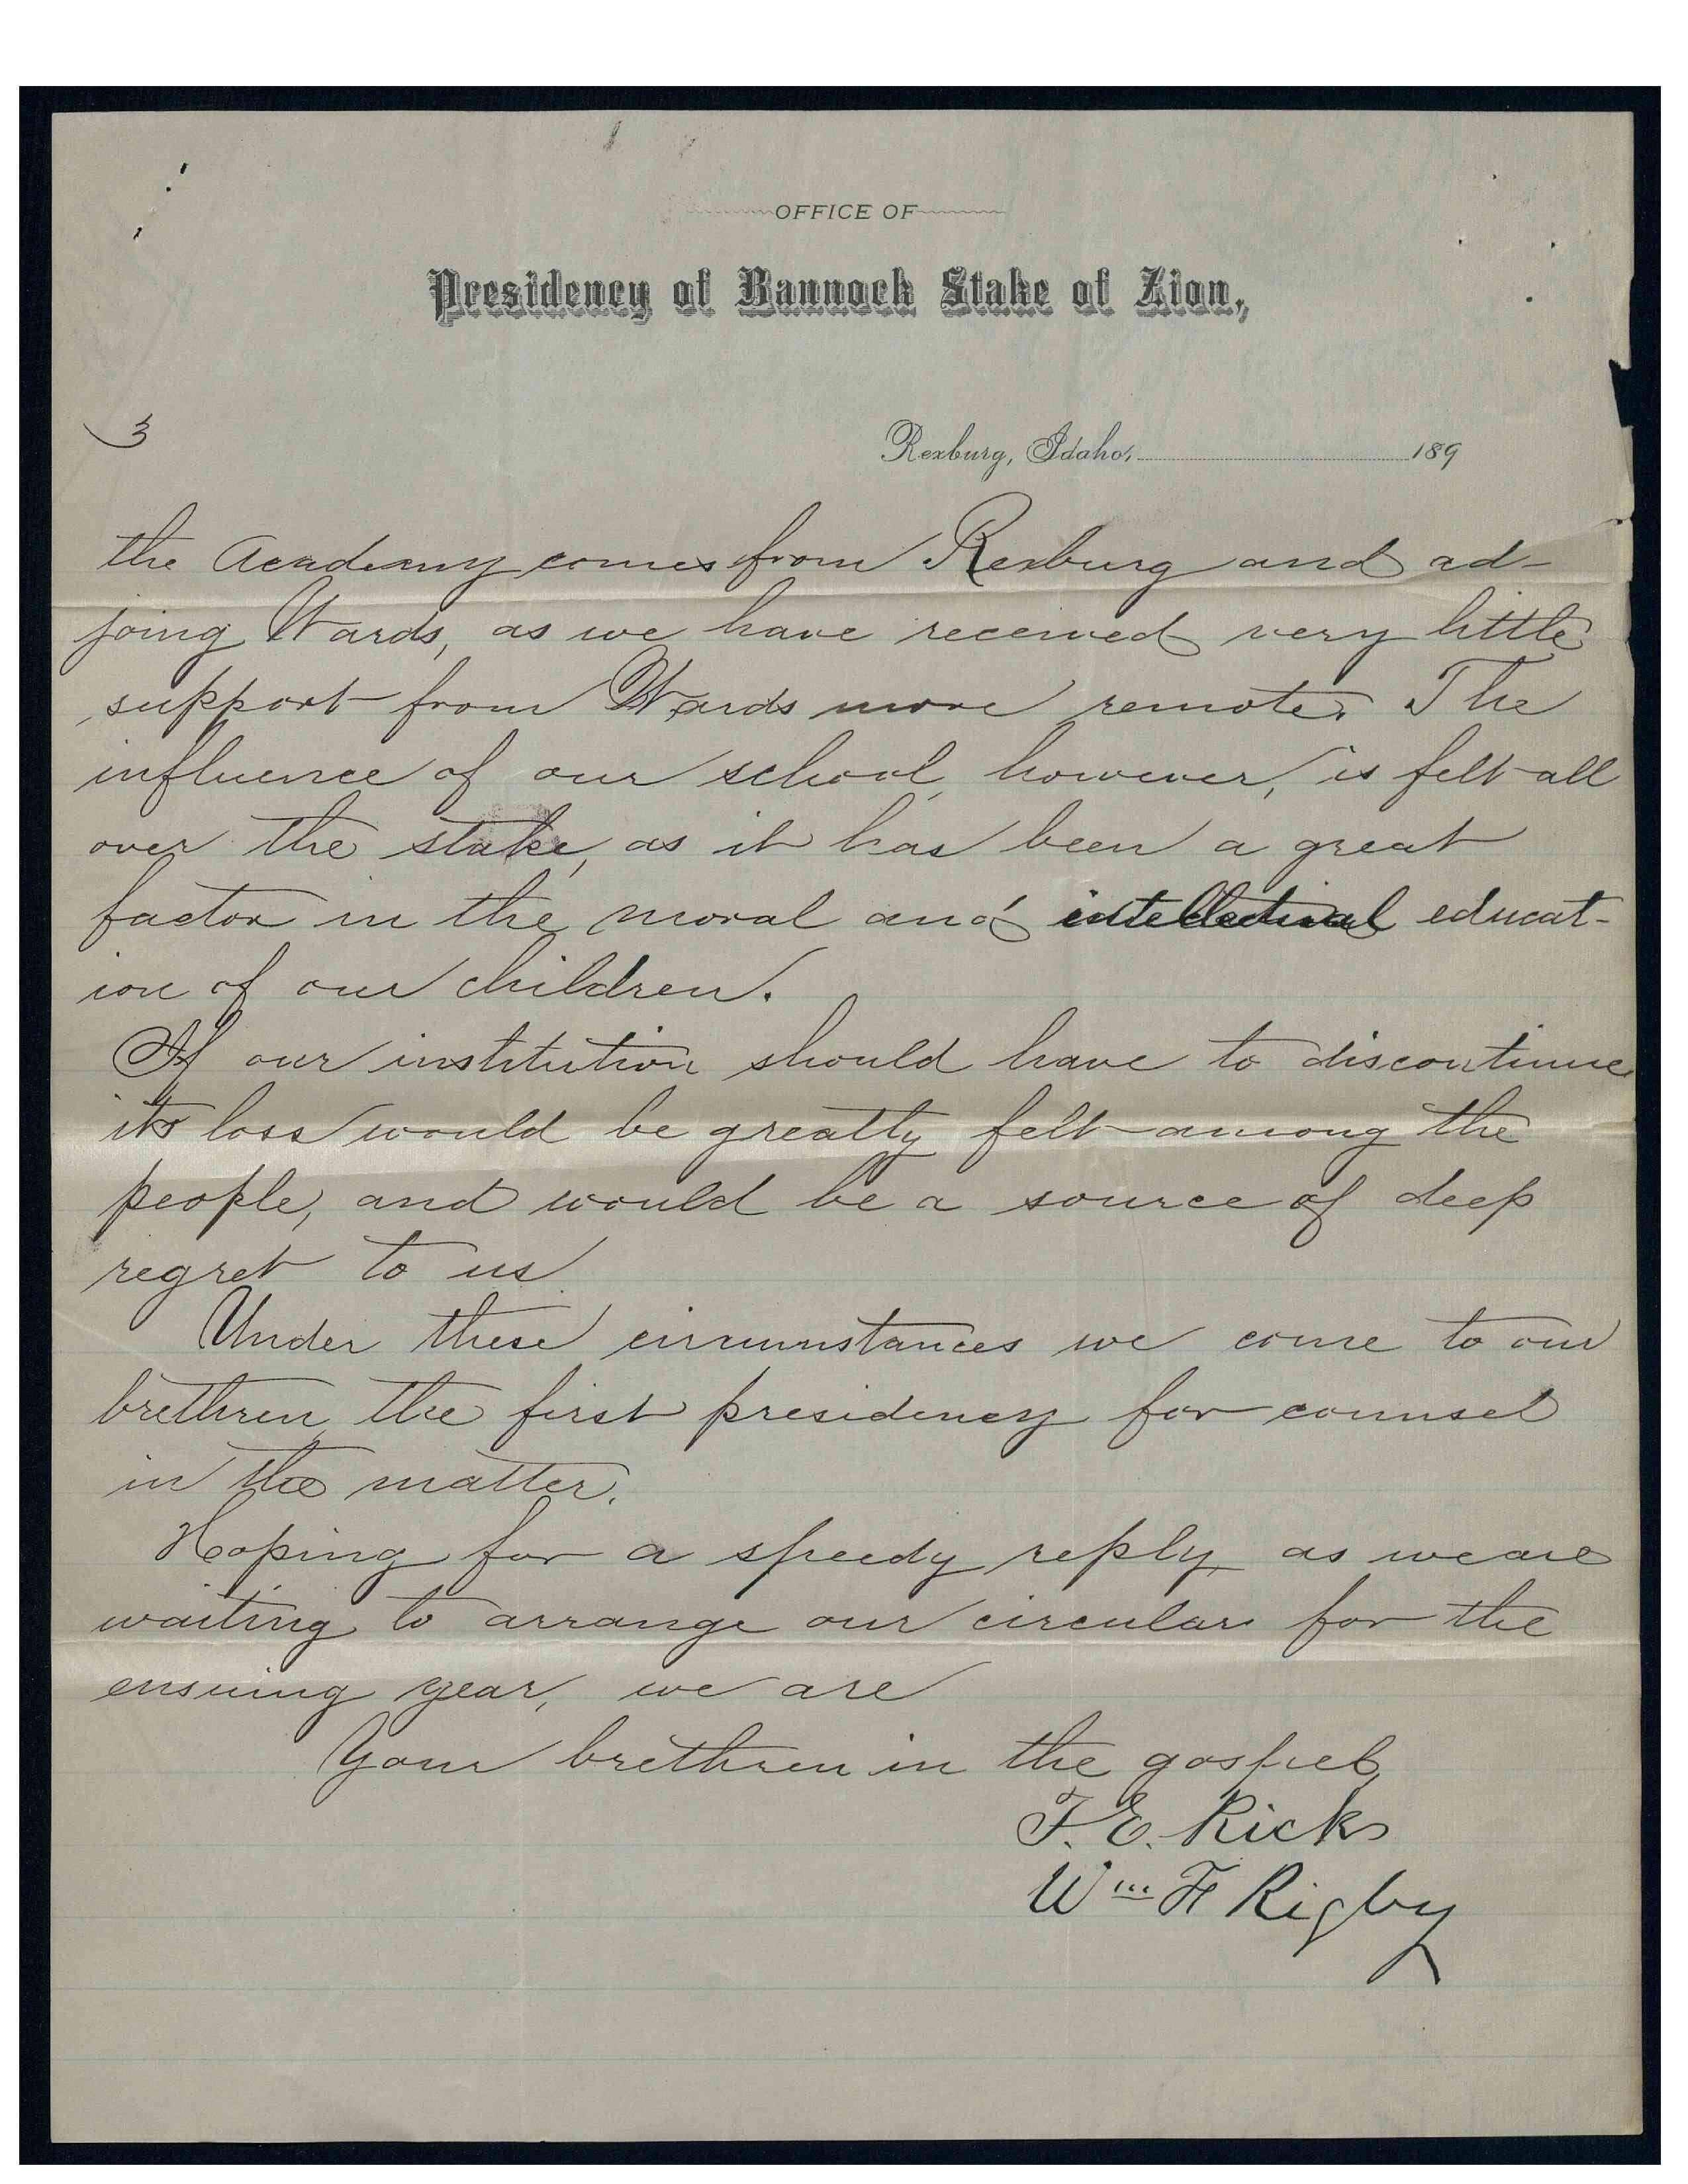 OFFICE OF
Presidency of Bannock Stake of Zion,
3
Rexburg, Idaho, 189
the Academy comes from Rexburg and ad-
joing Wards, as we have received very little
support from Wards more remote. The
influence of our school, however, is felt all
over the stake, as it has been a great
factor in the moral and intellectual educat-
ion of our children.
If our institution should have to discontinue
its loss would be greatly felt among the
people, and would be a source of deep
regret to us.
Under these circumstances we come to our
brethren, the first presidency for counsel
in the matter.
Hoping for a speedy reply, as we are
waiting to arrange our circular for the
ensuing year, we are
Your brethren in the gospel,
T. E. Ricks
Wm F Rigby